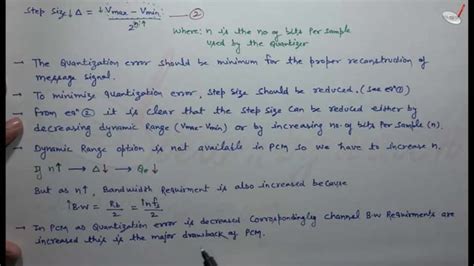 Step Size↓ Δ = ↓ Vmax - Vmin / 2^n↑ — ②
where: n is the no. of bits Per Sample
used by the Quantizer
→ The Quantization error should be minimum for the proper reconstruction of
message signal.
→ To minimize Quantization error, Step Size should be reduced. (see eqⁿ ①)
→ from eqⁿ ② it is clear that the Step Size can be reduced either by
decreasing dynamic Range (Vmax-Vmin) or by increasing no. of bits Per Sample (n).
→ Dynamic Range option is not available in PCM so we have to increase n.
If n↑ → Δ↓ → Qe↓
But as n↑, Bandwidth Requirment is also increased because
↑BW = Rb/2 = ↑nfs/2
→ In PCM as Quantization error is decreased Correspondingly channel B.W Requirments are
increased this is the major drawback of PCM.